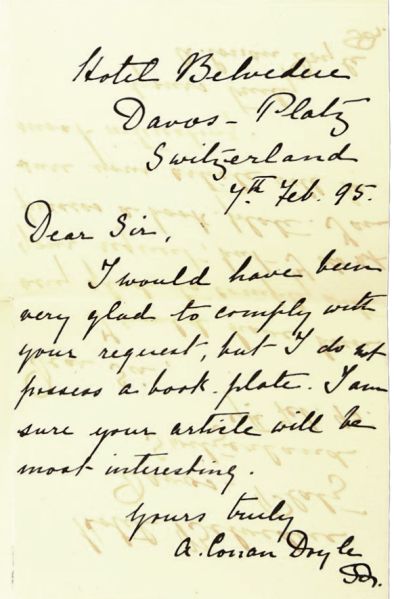 Hotel Belvedere
Davos-Platz
Switzerland
7th Feb. 95.
Dear Sir,
I would have been
very glad to comply with
your request, but I do not
possess a book-plate. I am
sure your article will be
most interesting.
Yours truly
A. Conan Doyle